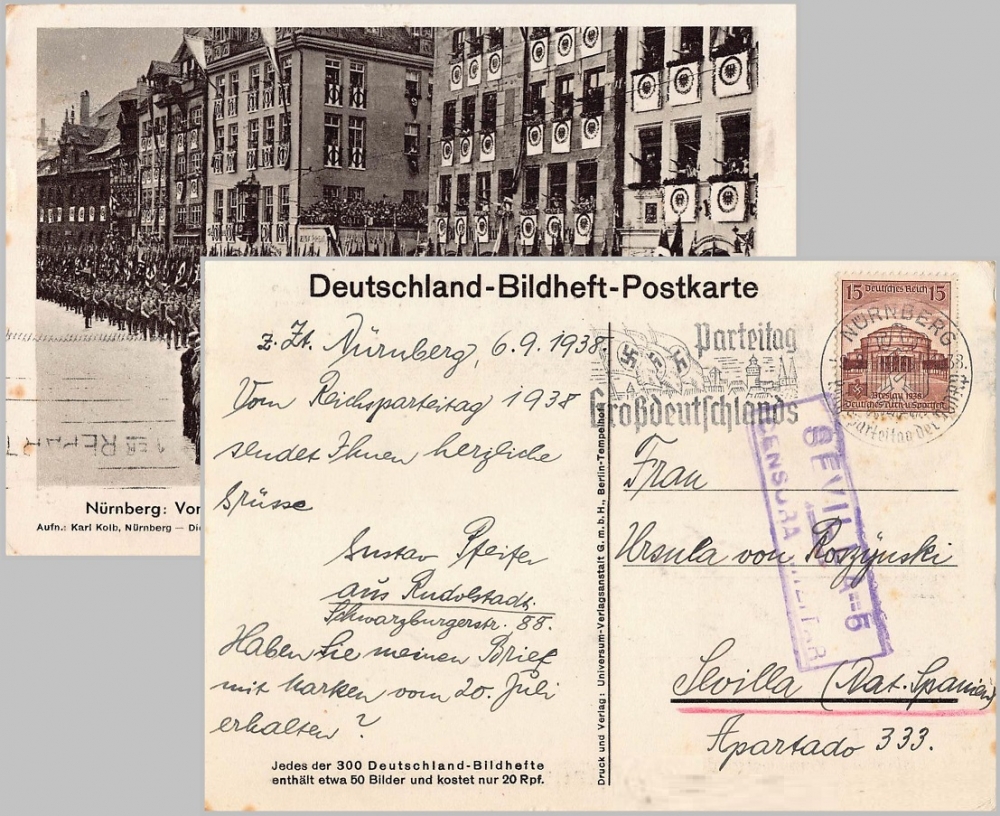 Nürnberg: Vor
Aufn.: Karl Kolb, Nürnberg — Di
Deutschland-Bildheft-Postkarte
z. Zt. Nürnberg, 6.9.1938.
Vom Reichsparteitag 1938
sendet Ihnen herzliche
Grüsse
Gustav Pfeifer
aus Rudolstadt.
Schwarzburgerstr. 88.
Haben Sie meinen Brief
mit Marken vom 20. Juli
erhalten?
Jedes der 300 Deutschland-Bildhefte
enthält etwa 50 Bilder und kostet nur 20 Rpf.
Druck und Verlag: Universum-Verlagsanstalt G.m.b.H., Berlin-Tempelhof
Parteitag
Großdeutschlands
15 Deutsches Reich 15
Breslau 1938
Deutsches Turn- u. Sportfest
NÜRNBERG
Reichsparteitag der NSDAP
SEVILLA
CENSURA MILITAR
Frau
Ursula von Roszynski
Sevilla (Nat. Spanien)
Apartado 333.